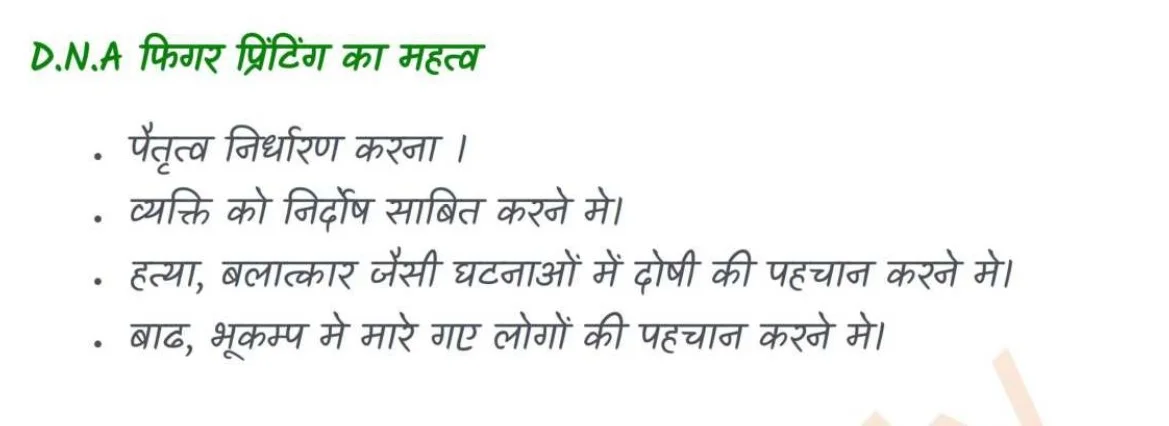 D.N.A फिगर प्रिंटिंग का महत्व
• पैतृत्व निर्धारण करना ।
• व्यक्ति को निर्दोष साबित करने मे।
• हत्या, बलात्कार जैसी घटनाओं में दोषी की पहचान करने मे।
• बाढ, भूकम्प मे मारे गए लोगों की पहचान करने मे।